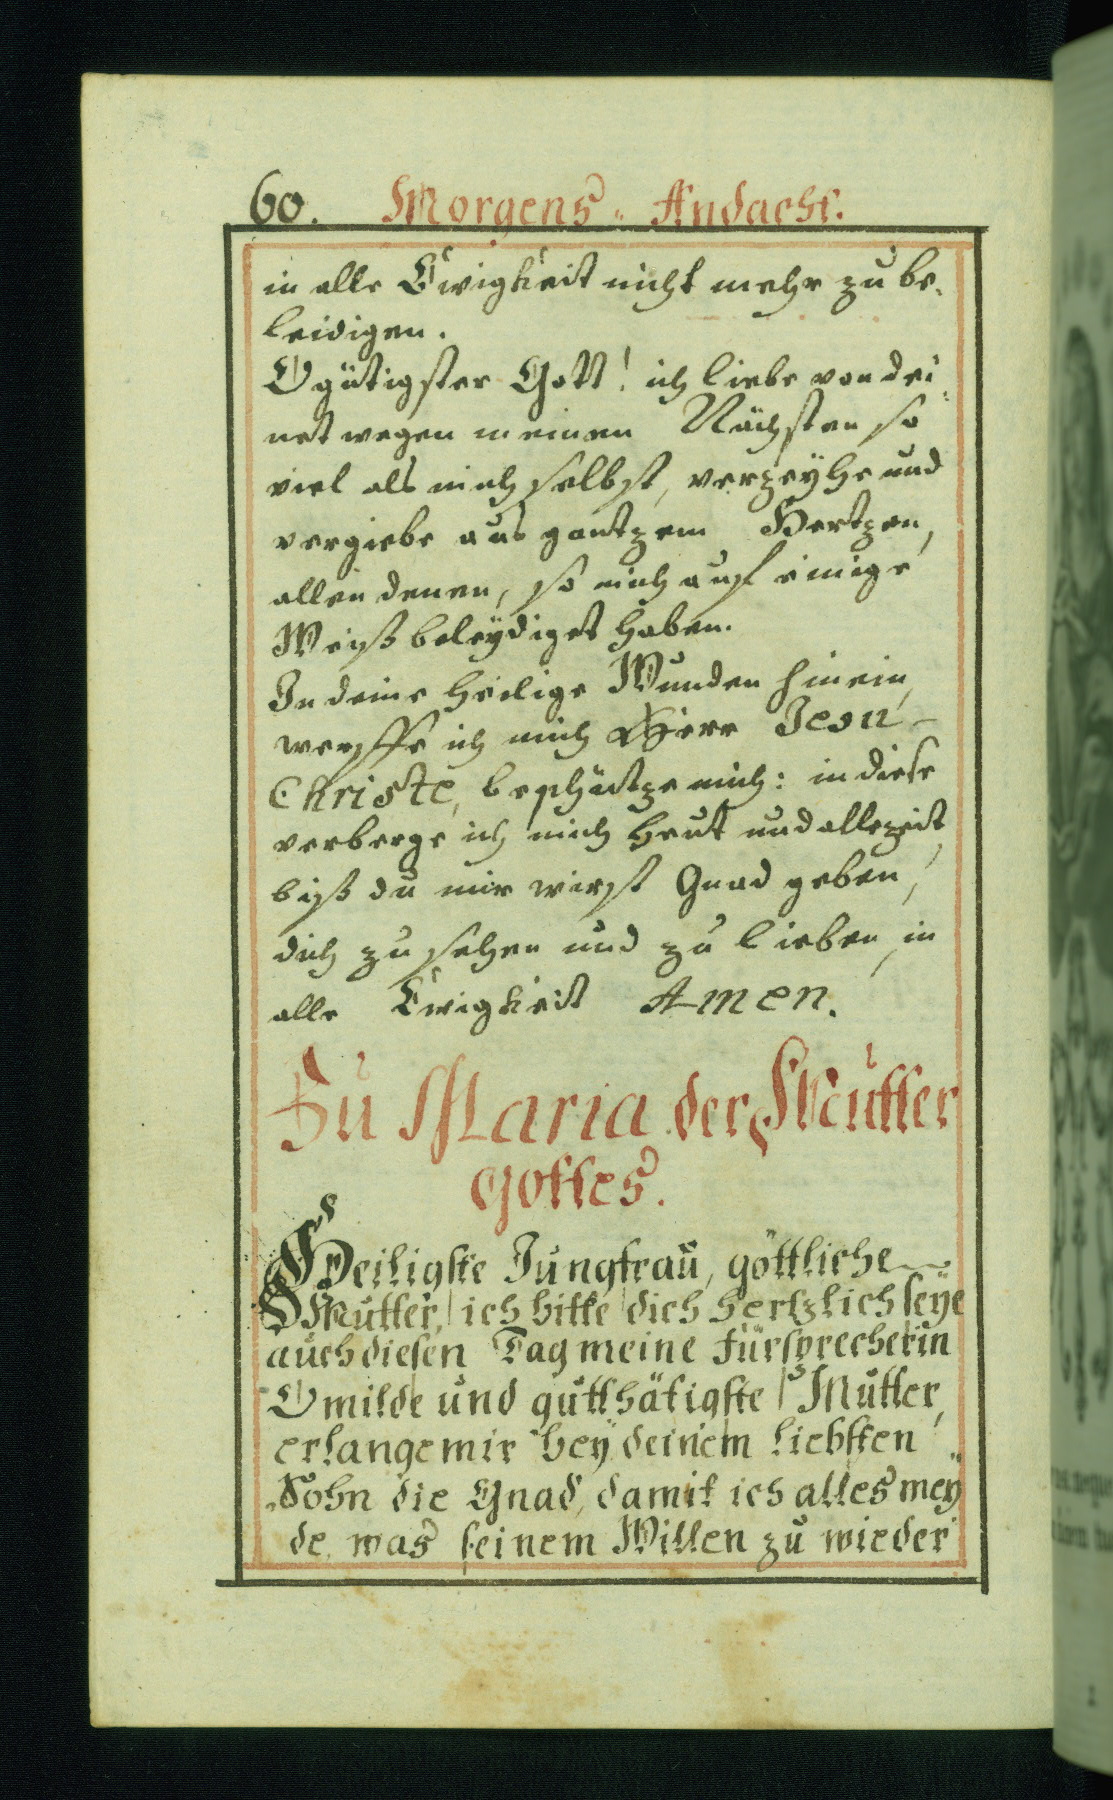 60. Morgens-Andacht.
in alle Ewigkeit nicht mehr zu be-
leidigen.
O gütigster Gott! ich liebe von dei-
net wegen meinen Nächsten so
viel als mich selbst, verzeÿhe und
vergiebe aus gantzem Hertzen,
allen denen, so mich auf einige
Weiß beleÿdiget haben.
In deine heilige Wunden hinein,
werffe ich mich O Herr Jesu
Christe, beschütze mich: in diese
verberge ich mich heut und allezeit,
biß du mir wirst Gnad geben,
dich zu sehen und zu lieben, in
alle Ewigkeit Amen.
Zu Maria der Mutter
Gottes.
Heiligste Jungfrau, göttliche
Mutter, ich bitte dich hertzlich seÿe
auch diesen Tag meine Fürsprecherin
O milde und gutthätigste Mutter,
erlange mir beÿ deinem liebsten
Sohn die Gnad, damit ich alles meÿ-
de, was seinem Willen zu wieder